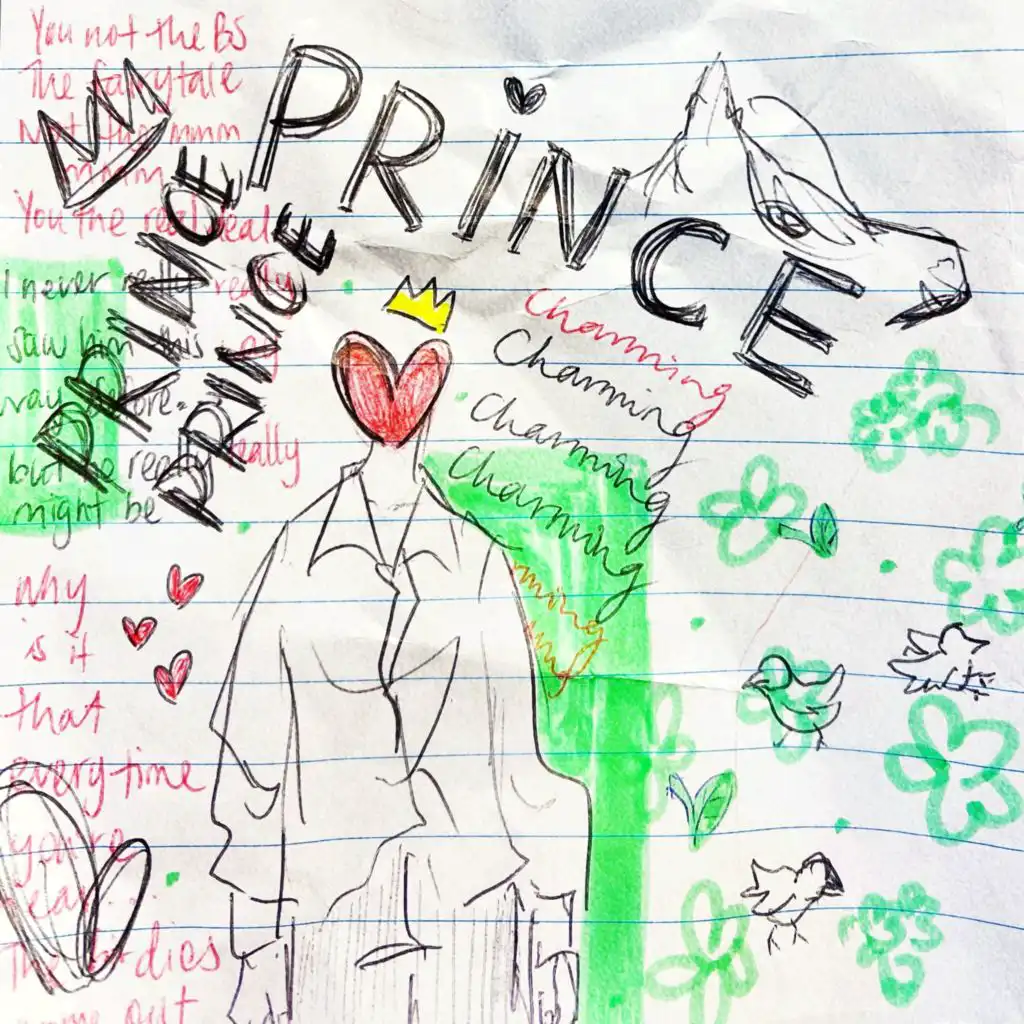 You not the BS
The fairytale
Not the mmm
mmm
You the real deal
PRINCE
PRINCE
PRINCE
I never really really
saw him this way
way before.
but he really really
might be
Charming
Charming
Charming
Charming
rming
ming
why
is it
that
everytime
you're
near...
The birdies
come out